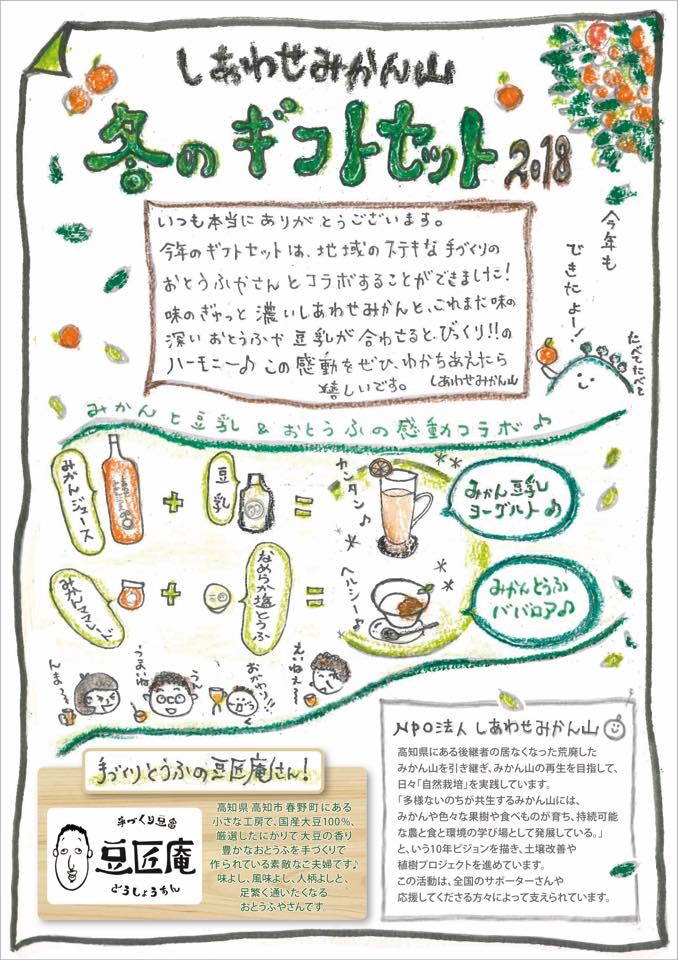 しあわせみかん山
冬のギフトセット 2018
いつも本当にありがとうございます。
今年のギフトセットは、地域のステキな手づくりの
おとうふやさんとコラボすることができました!
味のぎゅっと濃いしあわせみかんと、これまた味の
深いおとうふや豆乳が合わせると、びっくり!!の
ハーモニー♪ この感動をぜひ、ゆかちあえたら
嬉しいです。 しあわせみかん山
今年も
できたよー!
たべてたべて
みかんと豆乳&おとうふの感動コラボ♪
みかんジュース
+
豆乳
=
カンタン♪
みかん豆乳
ヨーグルト♪
みかんママレード
+
なめらか塩とうふ
=
ヘルシー♪
みかんとうふ
ババロア♪
んま〜
うまいね
うん
おかわり!!
えいねえ〜
NPO法人 しあわせみかん山
高知県にある後継者の居なくなった荒廃した
みかん山を引き継ぎ、みかん山の再生を目指して、
日々「自然栽培」を実践しています。
「多様ないのちが共生するみかん山には、
みかんや色々な果樹や食べものが育ち、持続可能
な農と食と環境の学び場として発展している。」
と、いう10年ビジョンを描き、土壌改善や
植樹プロジェクトを進めています。
この活動は、全国のサポーターさんや
応援してくださる方々によって支えられています。
手づくりとうふの豆匠庵さん!
手づくり豆富
豆匠庵
とうしょうあん
高知県高知市春野町にある
小さな工房で、国産大豆100%、
厳選したにがりで大豆の香り
豊かなおとうふを手づくりで
作られている素敵なご夫婦です♪
味よし、風味よし、人柄よしと、
足繁く通いたくなる
おとうふやさんです。